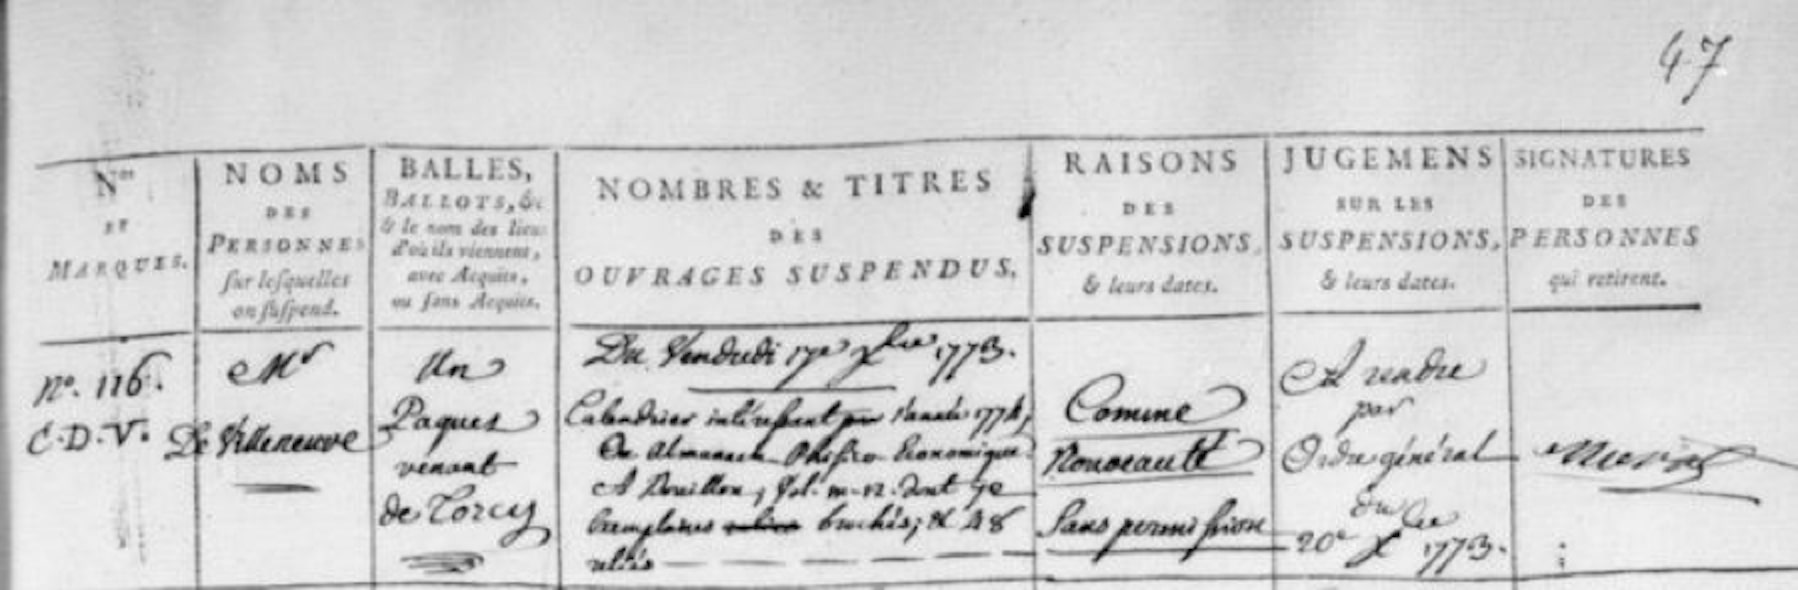 47
Nos
ET
MARQUES.
NOMS
DES
PERSONNES
sur lesquelles
on suspend.
BALLES,
BALLOTS, &c
& le nom des lieux
d'où ils viennent,
avec Acquits,
ou sans Acquits.
NOMBRES & TITRES
DES
OUVRAGES SUSPENDUS.
RAISONS
DES
SUSPENSIONS,
& leurs dates.
JUGEMENS
SUR LES
SUSPENSIONS,
& leurs dates.
SIGNATURES
DES
PERSONNES
qui retirent.
No. 116.
C.D.V.
Mr
De Villeneuve
Un
Paquet
venant
de Torcy
Du Vendredi 17e xbre 1773.
Calendrier intéressant pr l'année 1774,
Ou Almanach Phisico Economique
A Bouillon, Vol. in-12. dont
Exemplaires brochés; & 48
reliés
Comme
Nouveauté
Sans permission
A rendre
par
Ordre général
du
20e xbre 1773.